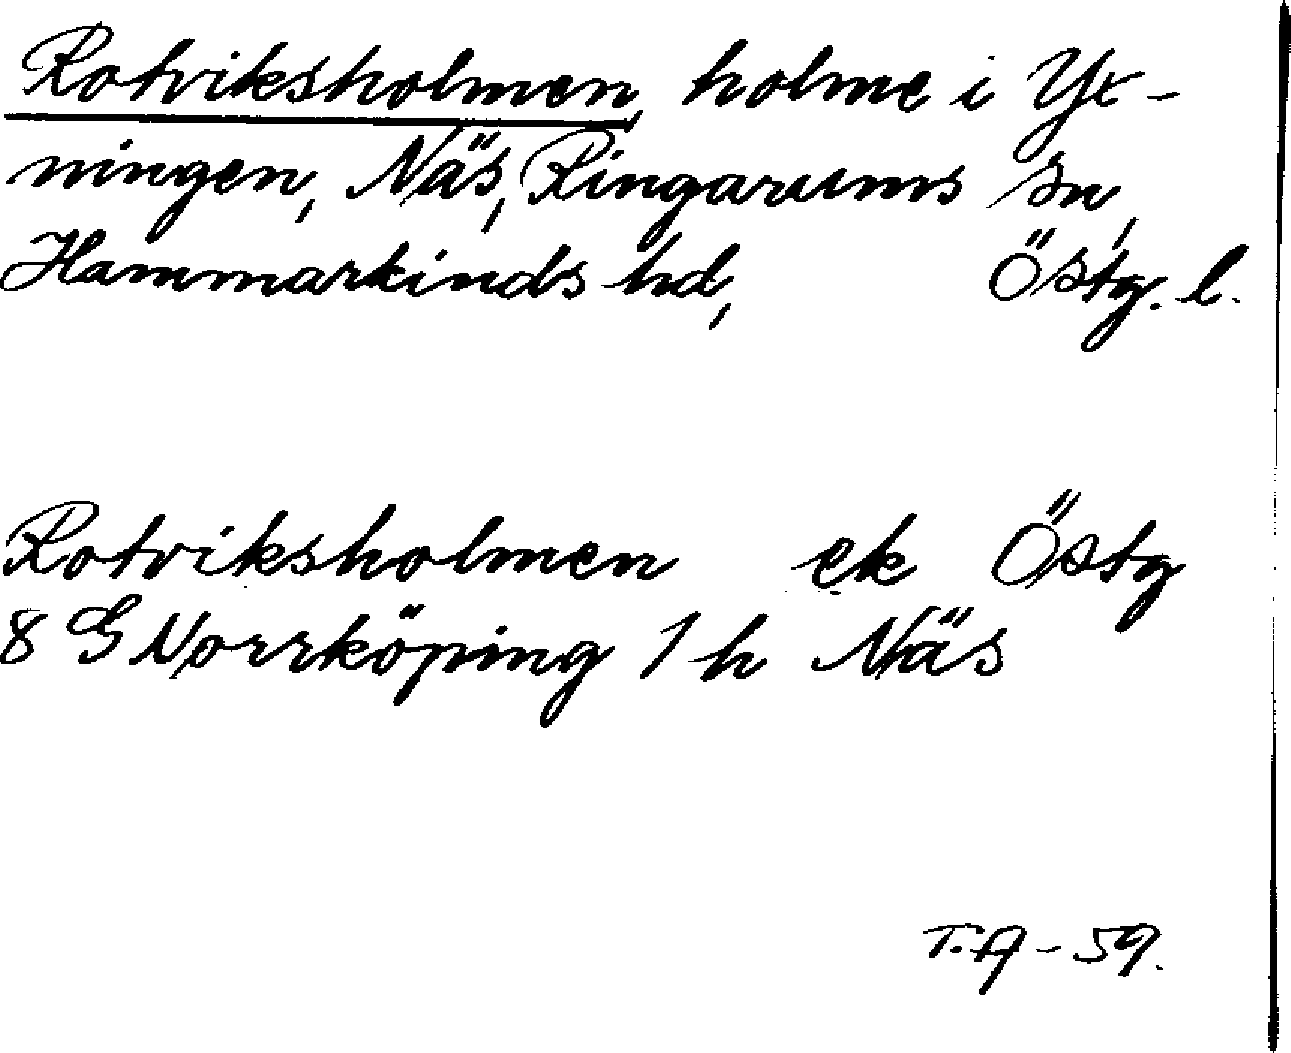 Rotviksholmen, holme i Yx-
ningen, Näs, Ringarums sn,
Hammarkinds hd, Östg. l.
Rotviksholmen ek Östg
8 G Norrköping 1 h Näs
T. A - 59.